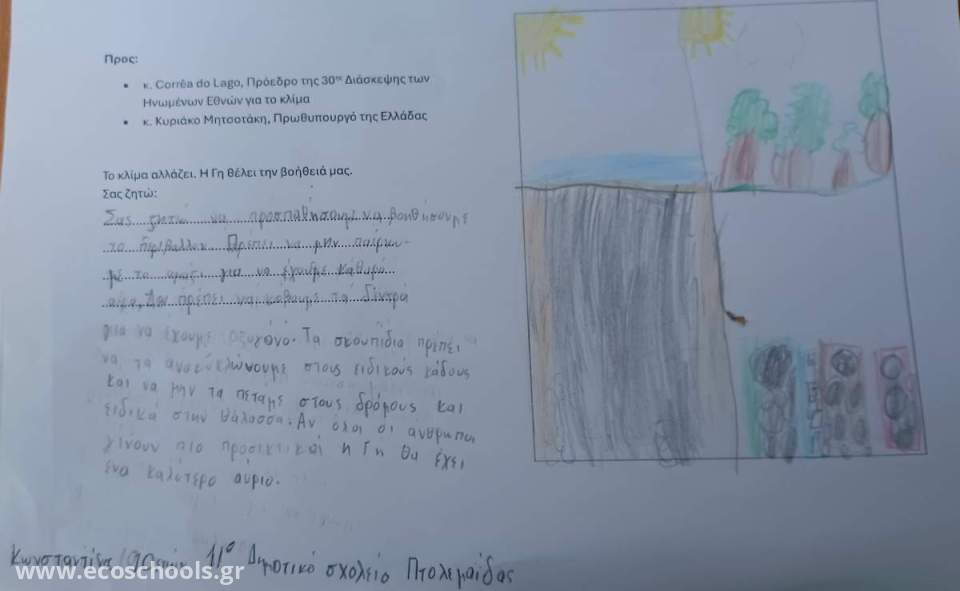 Προς:
• κ. Corrêa do Lago, Πρόεδρο της 30ης Διάσκεψης των
Ηνωμένων Εθνών για το κλίμα
• κ. Κυριάκο Μητσοτάκη, Πρωθυπουργό της Ελλάδας
Το κλίμα αλλάζει. Η Γη θέλει την βοήθειά μας.
Σας ζητώ:
Σας ζητώ να προσπαθήσουμε να βοηθήσουμε
το περιβάλλον. Πρέπει να μην παίρνου-
με το αμάξι για να έχουμε καθαρό
αέρα. Δεν πρέπει να κόβουμε τα δέντρα
για να έχουμε οξυγόνο. Τα σκουπίδια πρέπει
να τα ανακυκλώνουμε στους ειδικούς κάδους
και να μην τα πετάμε στους δρόμους και
ειδικά στην θάλασσα. Αν όλοι οι άνθρωποι
γίνουν πιο προσεκτικοί η Γη θα έχει
ένα καλύτερο αύριο.
Κωνσταντίνα 11ο Δημοτικό σχολείο Πτολεμαΐδας
www.ecoschools.gr